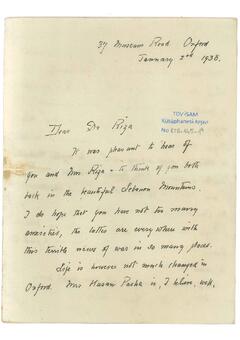 37 Museum Road Oxford
January 2nd 1938.
TDV İSAM
Kütüphanesi Arşivi
No
Dear Dr Riza
It was pleasant to hear of
you and Mrs Riza & to think of you both
back in the beautiful Lebanon Mountains.
I do hope that you have not too many
anxieties, the latter are every where with
this terrible news of war in so many places.
Life is however not much changed in
Oxford. Mrs Hasan Pasha is, I believe, well,